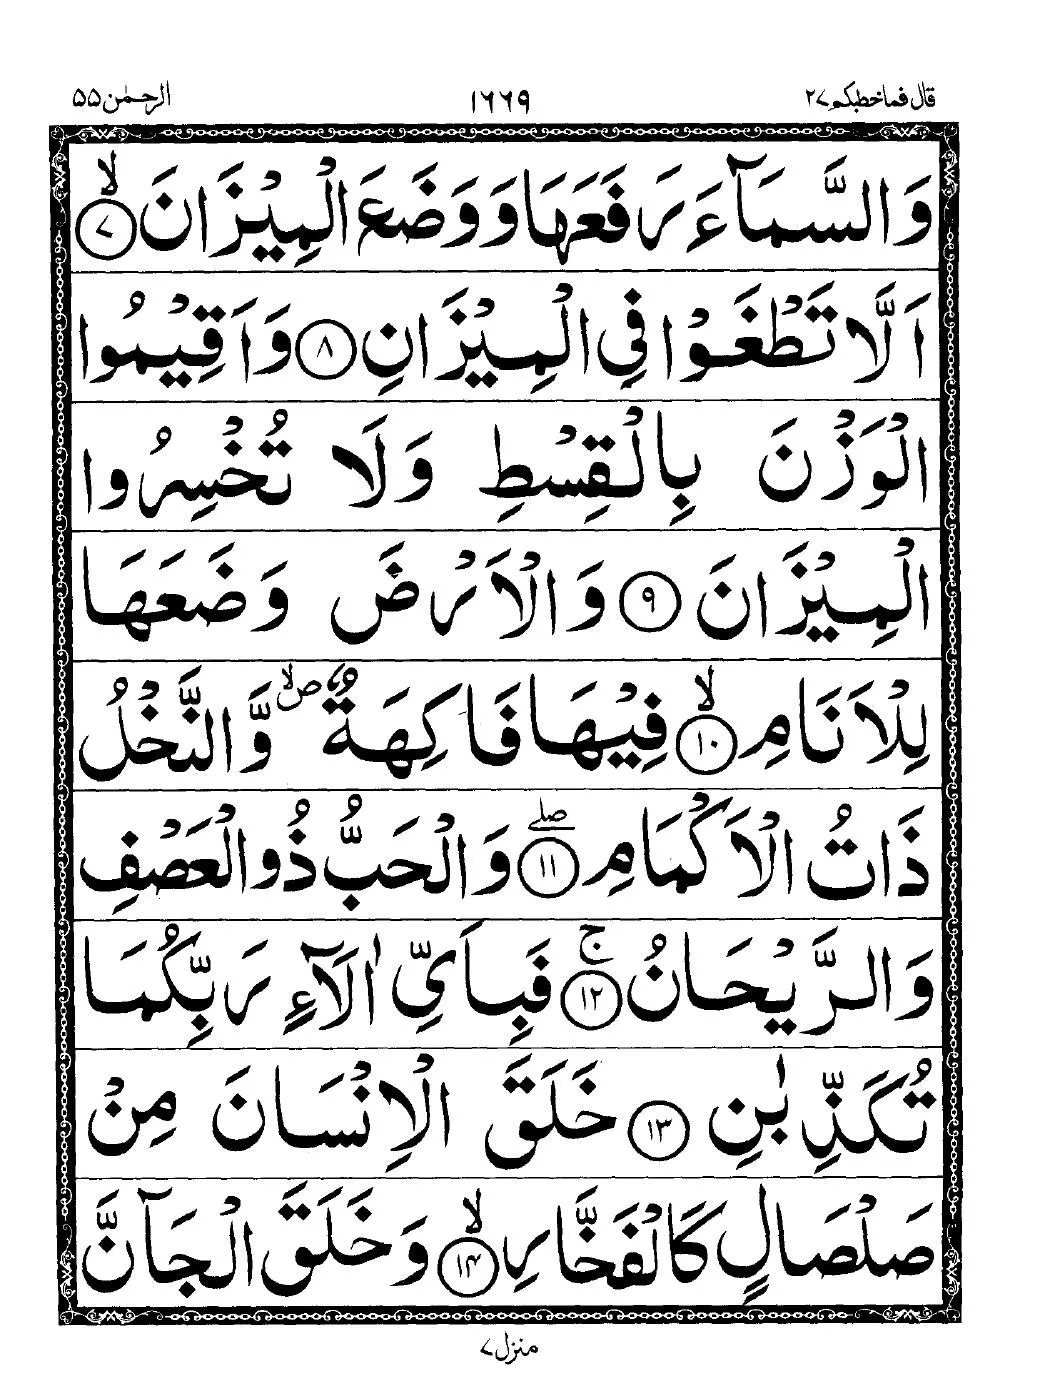 قال فما خطبكم ٢٧ ١٦٦٩ الرحمٰن ٥٥
وَالسَّمَآءَ رَفَعَهَا وَوَضَعَ الْمِيْزَانَ ۙ‏ ﴿۷﴾
اَلَّا تَطْغَوْا فِي الْمِيْزَانِ ﴿۸﴾ وَاَقِيْمُوا
الْوَزْنَ بِالْقِسْطِ وَلَا تُخْسِرُوا
الْمِيْزَانَ ﴿۹﴾ وَالْاَرْضَ وَضَعَهَا
لِلْاَنَامِ ۙ ﴿۱۰﴾ فِيْهَا فَاكِهَةٌ ۙص وَّالنَّخْلُ
ذَاتُ الْاَكْمَامِ ۖ ﴿۱۱﴾ وَالْحَبُّ ذُو الْعَصْفِ
وَالرَّيْحَانُ ۚ ﴿۱۲﴾ فَبِاَيِّ اٰلَآءِ رَبِّكُمَا
تُكَذِّبٰنِ ﴿۱۳﴾ خَلَقَ الْاِنْسَانَ مِنْ
صَلْصَالٍ كَالْفَخَّارِ ۙ ﴿۱۴﴾ وَخَلَقَ الْجَآنَّ
منزل ٧